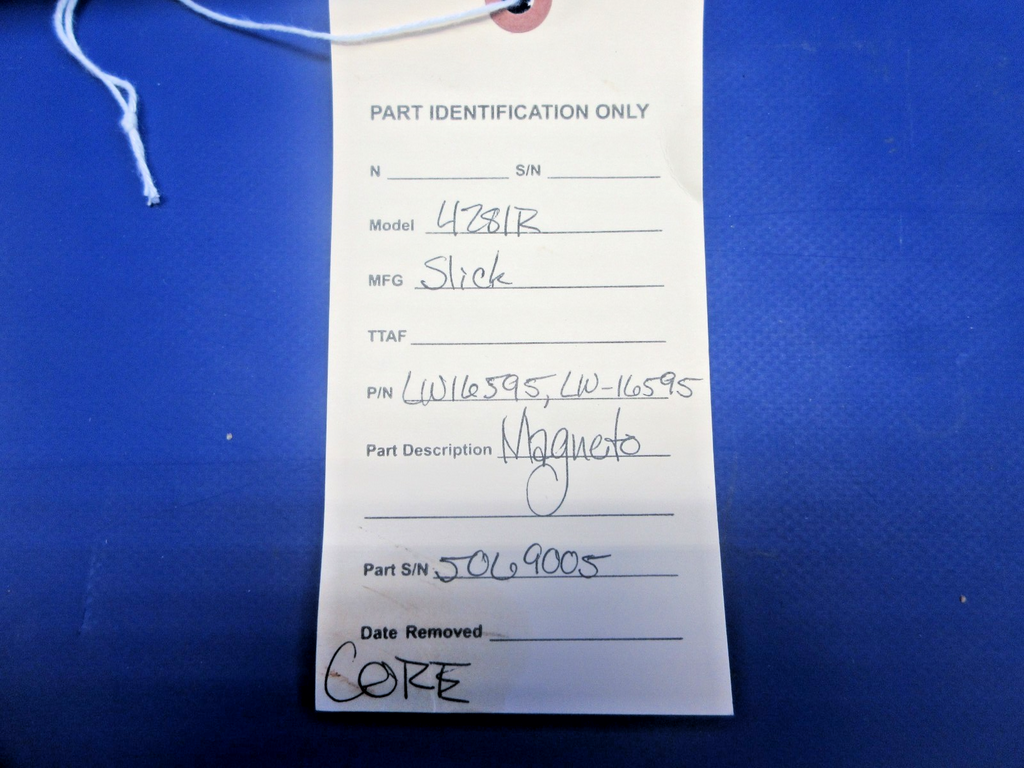 PART IDENTIFICATION ONLY
N S/N
Model 4281R
MFG Slick
TTAF
P/N LW16595, LW-16595
Part Description Magneto
Part S/N 5069005
Date Removed
CORE